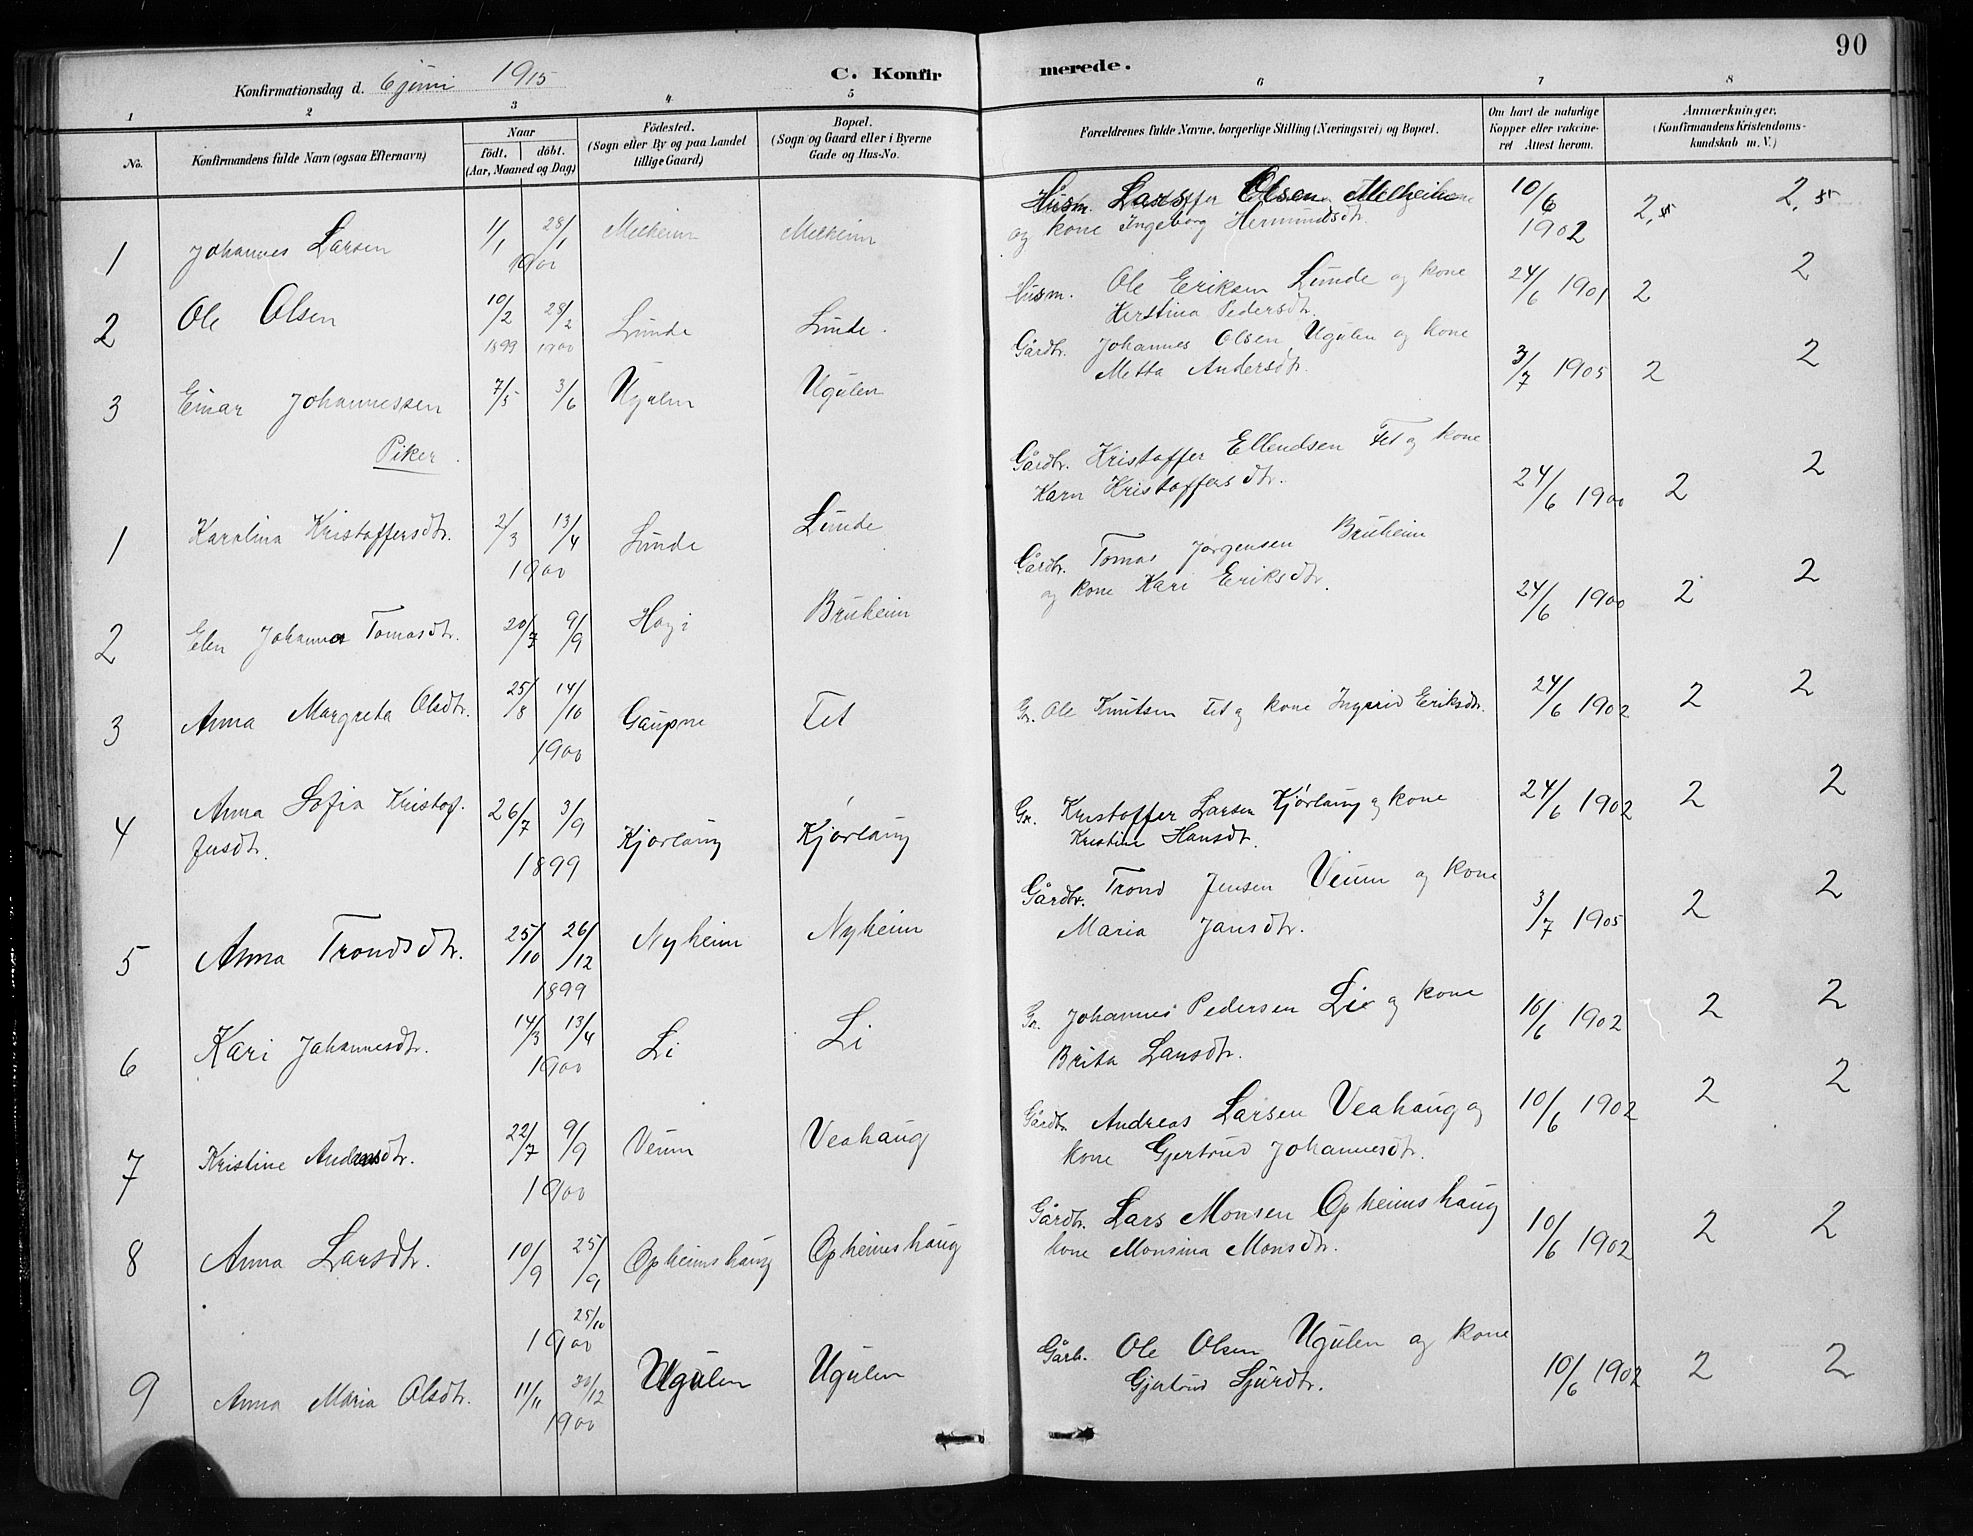 90
Konfirmationsdag d. 6 juni 1915
C. Konfirmerede.
1 2 3 4 5 6 7 8
No.
Konfirmandens fulde Navn (ogsaa Efternavn)
Naar
født. døbt.
(Aar, Maaned og Dag)
Fødested.
(Sogn eller By og paa Landet
tillige Gaard)
Bopæl.
(Sogn og Gaard eller i Byerne
Gade og Hus-No.
Forældrenes fulde Navne, borgerlige Stilling (Næringsvei) og Bopæl.
Om havt de naturlige
Kopper eller vakcine-
ret Attest herom.
Anmærkninger,
(Konfirmandens Kristendoms-
kundskab m. V.)
1 Johannes Larsen 1/1 28/1 1900 Melheim Melheim Husm. Lars Olsen Melheim
og kone Ingeborg Hermundsdtr. 10/6 1902 2,5 2,5
2 Ole Olsen 10/2 28/2 Lunde Lunde. Husm. Ole Eriksen Lunde og kone
Kerstina Pedersdtr. 24/6 1901 2 2
1899 1900
3 Einar Johannessen 7/5 3/6 Ugulen Ugulen Gårdbr. Johannes Olsen Ugulen og kone
Metta Andersdtr. 3/7 1905 2 2
Piker.
1 Karolina Kristoffersdtr. 2/3 13/4 1900 Lunde Lunde Gårdbr. Kristoffer Ellendsen Fet og kone
Karn Kristoffersdtr. 24/6 1900 2 2
2 Elen Johanna Tomasdtr. 20/7 9/9 Høgi Bruheim Gårdbr. Tomas Jørgensen Bruheim
og kone Kari Eriksdtr. 24/6 1900 2 2
3 Anna Margreta Olsdtr. 25/8 14/10 1900 Gaupne Fet Gr. Ole Knutsen Fet og kone Ingerid Eriksdtr. 24/6 1902 2 2
4 Anna Sofia Kristof-
fersdtr. 26/7 3/9 1899 Kjørlaug Kjørlaug Gr. Kristoffer Larsen Kjørlaug og kone
Kristine Hansdtr. 24/6 1902 2 2
5 Anna Trondsdtr. 25/10 26/12 1899 Nyheim Nyheim Gårdbr. Trond Jensen Veum og kone
Maria Jansdtr. 3/7 1905 2 2
6 Kari Johannesdtr. 14/3 13/4 1900 Li Li Gr. Johannes Pedersen Li og kone
Brita Larsdtr. 10/6 1902 2 2
7 Kristine Andersdtr. 22/7 9/9 1900 Veum Veahaug Gårdbr. Andreas Larsen Veahaug og
kone Gjertrud Johannesdtr. 10/6 1902 2 2
8 Anna Larsdtr. 10/9 25/9 25/10 1900 Opheimshaug Opheimshaug Gårdbr. Lars Monsen Opheimshaug
kone Monsina Monsdtr. 10/6 1902 2 2
9 Anna Maria Olsdtr. 11/11 30/12 1900 Ugulen Ugulen Gårb. Ole Olsen Ugulen og kone
Gjertrud Sjurdtr. 10/6 1902 2 2